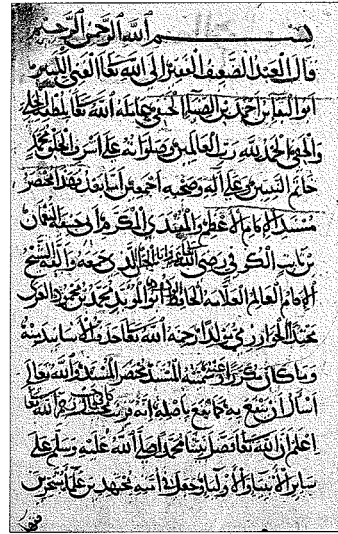 بسم الله الرحمن الرحيم
قال العبد الضعيف الفقير الى الله تعالى الغني الكبير
ابو البقا بن احمد بن الضيا الحنفي عامله الله تعالى بلطفه
والحمد لله رب العالمين وصلواته على اشرف الخلق محمد
خاتم النبيين وعلى اله وصحبه اجمعين اما بعد فهذا مختصر
مسند الامام الاعظم المكرم ابي حنيفة النعمان
بن ثابت الكوفي رضي الله الذي جمعه والفه الشيخ
الامام العالم العلامة الحافظ ابو المويد محمد بن محمود العربي
محتدا الخوارزمي مولدا رحمه الله تعالى حذفت الاسانيد منه
وما كان مكررا وسميته المستند مختصر المسند والله تعالى
اسال ان ينفع به كما نفع باصله انه الله تعالى
اعلم ان الله تعالى فضل نبينا محمدا صلى الله عليه وسلم على
ساير الانبياء والاولياء وجعل في امته مجتهدين علماء متبحرين